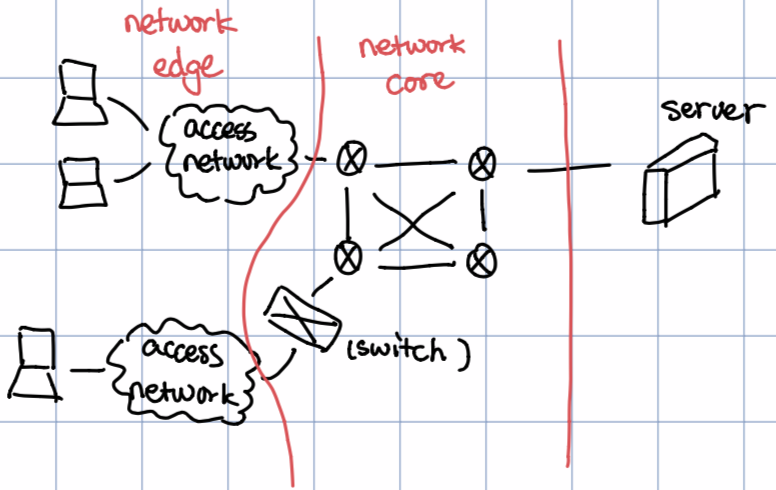 network
edge
network
core
server
access
network
(switch)
access
network